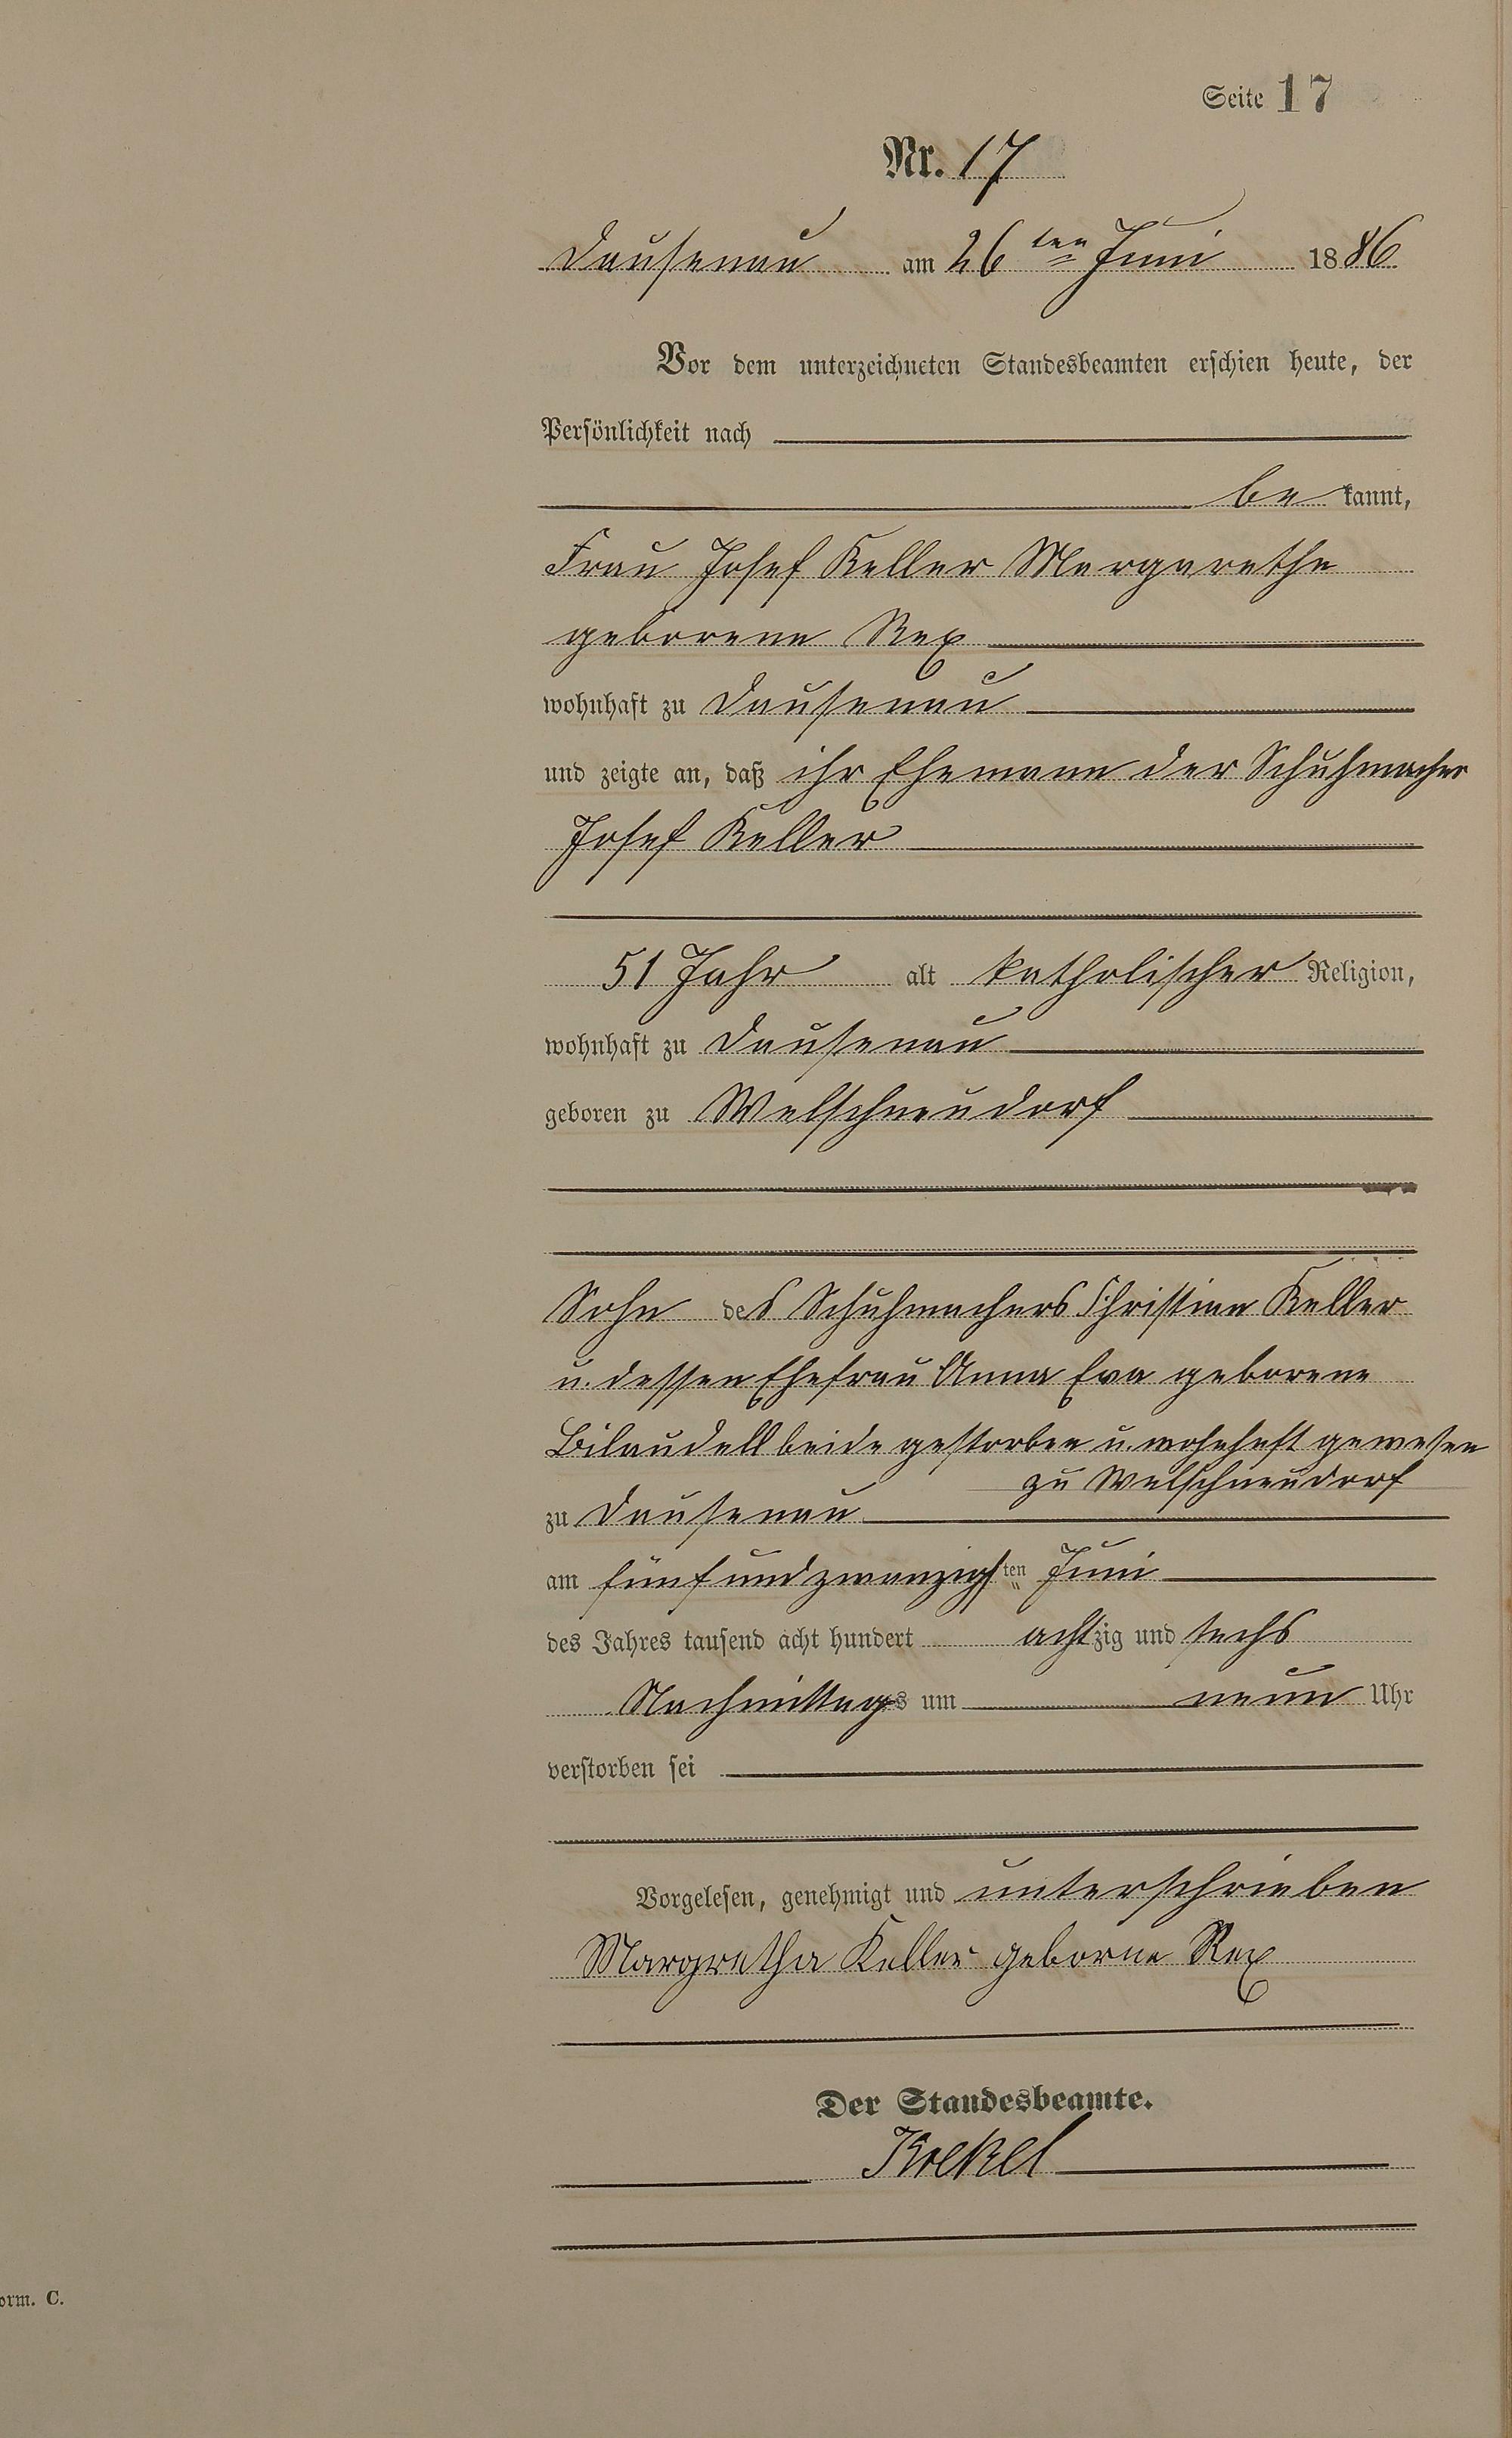 Seite 17
Nr. 17
Dausenau am 26ten Juni 1886
Vor dem unterzeichneten Standesbeamten erschien heute, der
Persönlichkeit nach
be kannt,
Frau Josef Keller Margarethe
geborene Rex
wohnhaft zu Dausenau
und zeigte an, daß ihr Ehemann der Schuhmacher
Josef Keller
51 Jahr alt katholischer Religion,
wohnhaft zu Dausenau
geboren zu Welschneudorf
Sohn des Schuhmachers Christian Keller
u. dessen Ehefrau Anna Eva geborene
Bilaudell beide gestorben u. wohnhaft gewesen
zu Welschneudorf
zu Dausenau
am fünfundzwanzigsten Juni
des Jahres tausend acht hundert achtzig und sechs
Nachmittags um neun Uhr
verstorben sei
Vorgelesen, genehmigt und unterschrieben
Margretha Keller geborne Rex
Der Standesbeamte.
orm. C.